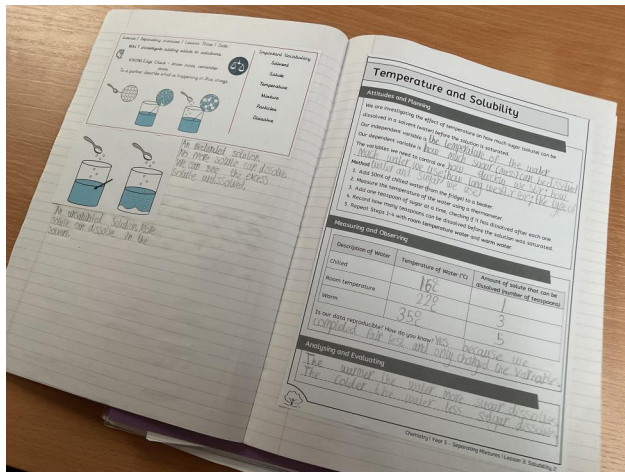 Science | Separating mixtures | Lesson Three | Date
WALT investigate adding solute to solutions.
KNOWLEdge Check - Know more, remember more.
To a partner describe what is happening in this image.
Important Vocabulary
Solvent
Solute
Temperature
Mixture
Particles
Dissolve
solution
No more solute can dissolve
We can see the excess
solute
An unsaturated solution. More
solute can dissolve in the
solvent
Temperature and Solubility
Attitudes and Planning
We are investigating the effect of temperature on how much sugar (solute) can be
dissolved in a solvent (water) before the solution is saturated.
Our independent variable is the temperature of the water
Our dependent variable is how much sugar can be dissolved
The variables we need to control are how much
water we use, how long we stir, the type of
water and sugar we use
Method
1. Add 50ml of chilled water (from the fridge) to a beaker.
2. Measure the temperature of the water using a thermometer.
3. Add one teaspoon of sugar at a time, checking if it has dissolved after each one.
4. Record how many teaspoons can be dissolved before the solution was saturated.
5. Repeat Steps 1-4 with room temperature water and warm water.
Measuring and Observing
Description of Water
Temperature of Water (°C)
Amount of solute that can be dissolved (number of teaspoons)
Chilled
16°c
1
Room temperature
22°c
3
Warm
35°c
5
Is our data reproducible? How do you know? Yes because we
completed fair test and only changed the variable.
Analysing and Evaluating
The warmer the water more sugar dissolves
The colder the water less sugar dissolves
Chemistry | Year 5 - Separating Mixtures | Lesson 3: Solubility 2